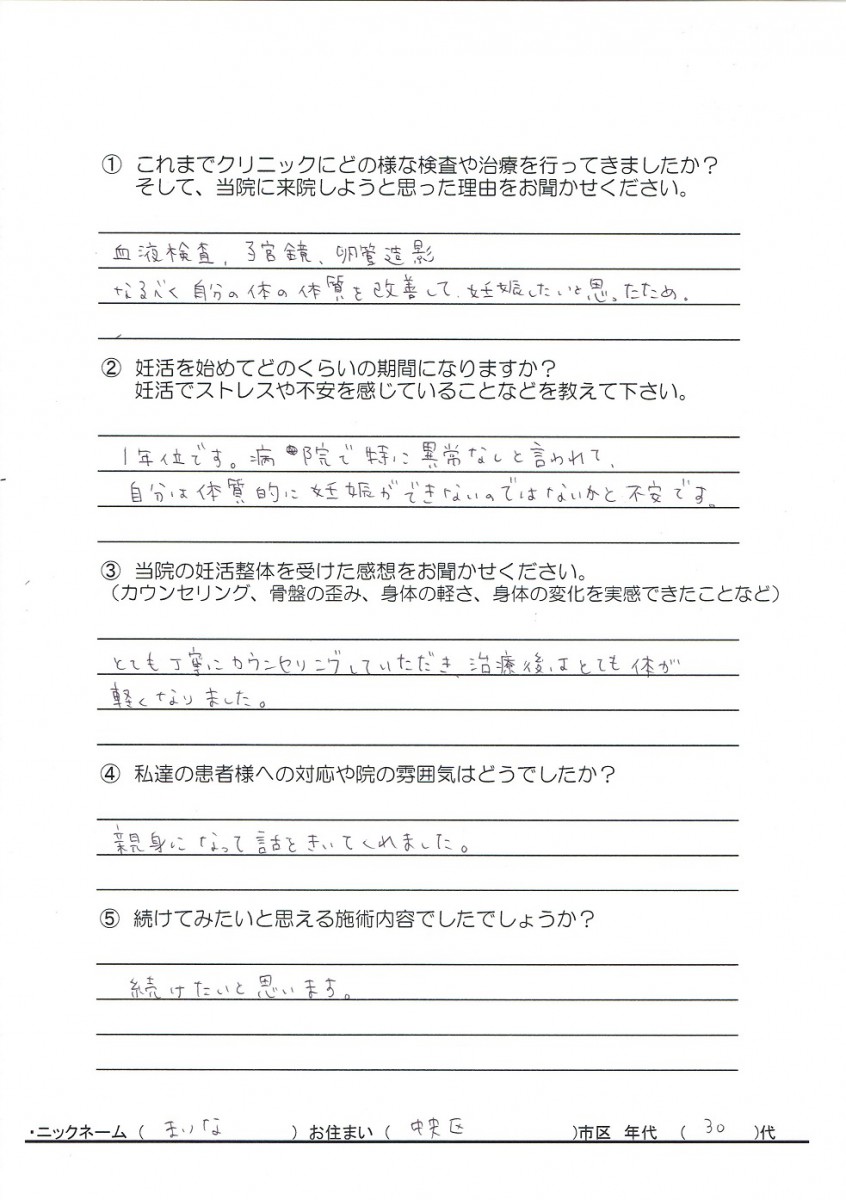 ① これまでクリニックにどの様な検査や治療を行ってきましたか？
そして、当院に来院しようと思った理由をお聞かせください。
血液検査、子宮鏡、卵管造影
なるべく自分の体の体質を改善して、妊娠したいと思ったため。
② 妊活を始めてどのくらいの期間になりますか？
妊活でストレスや不安を感じていることなどを教えて下さい。
1年位です。病院で特に異常なしと言われて、
自分は体質的に妊娠ができないのではないかと不安です。
③ 当院の妊活整体を受けた感想をお聞かせください。
（カウンセリング、骨盤の歪み、身体の軽さ、身体の変化を実感できたことなど）
とても丁寧にカウンセリングしていただき、治療後はとても体が
軽くなりました。
④ 私達の患者様への対応や院の雰囲気はどうでしたか？
親身になって話をきいてくれました。
⑤ 続けてみたいと思える施術内容でしたでしょうか？
続けたいと思います。
・ニックネーム（ まりな ）お住まい（ 中央区 ）市区 年代 （ 30 ）代